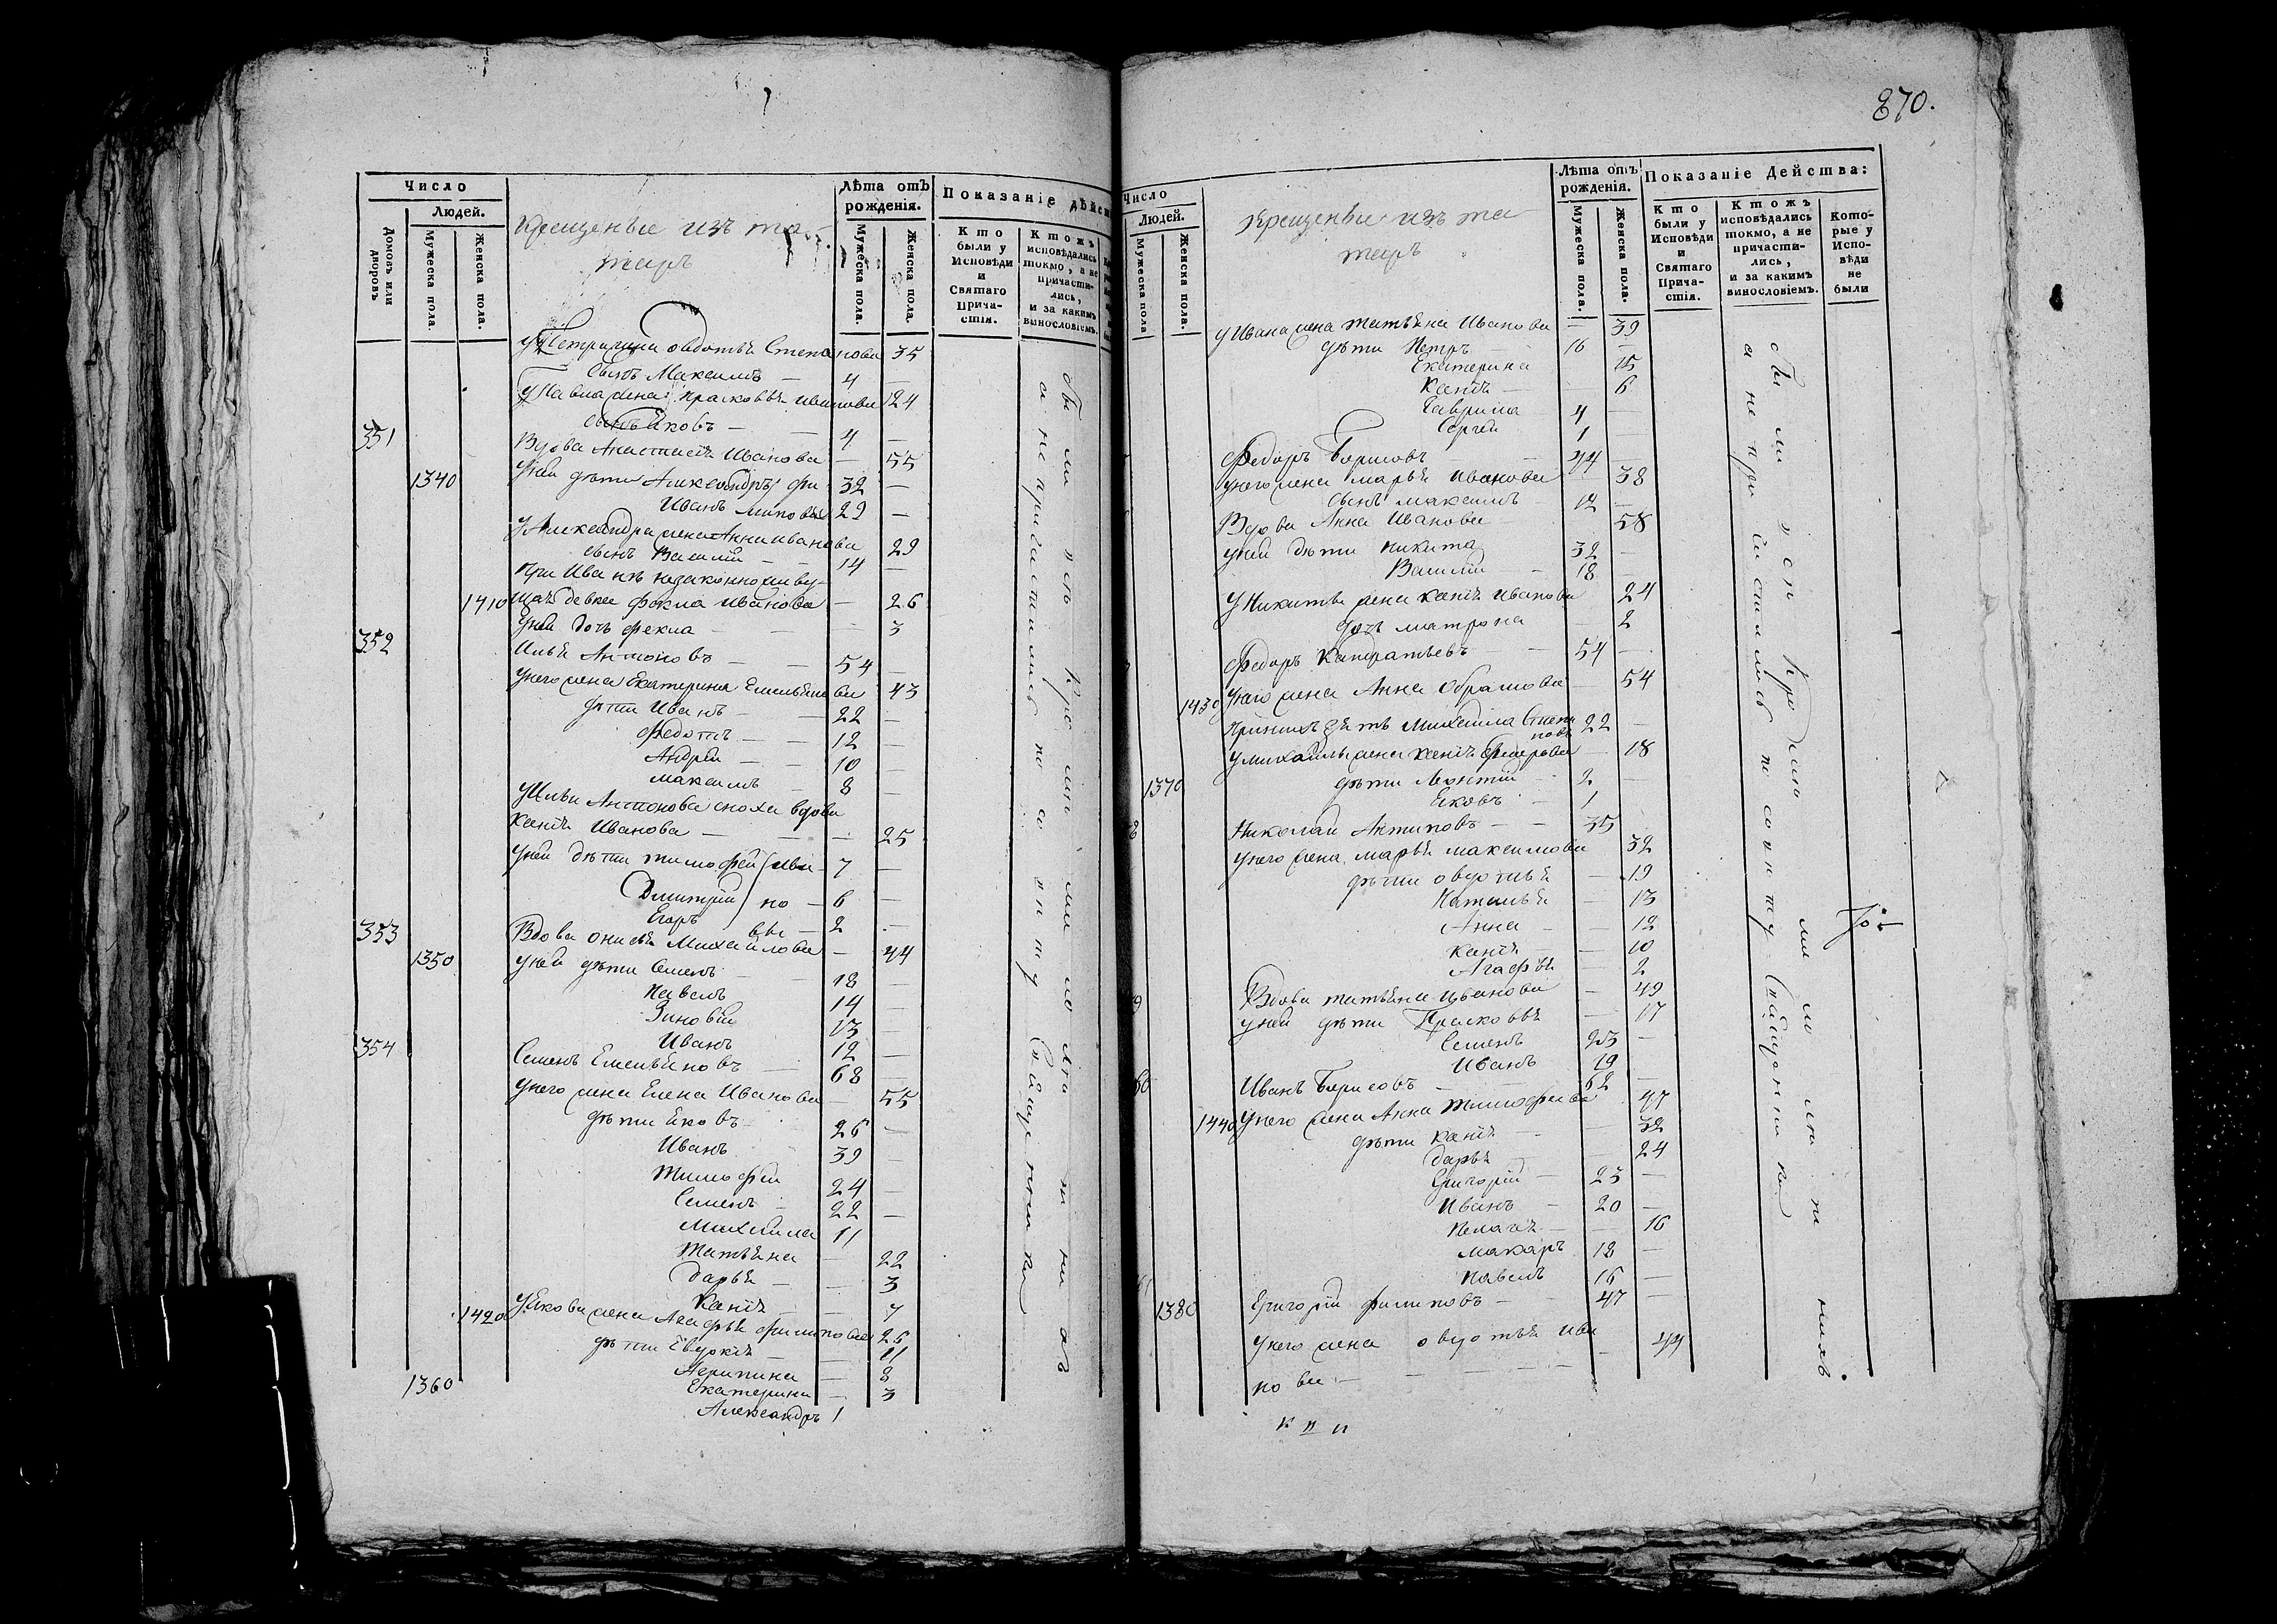 870.
Число
Людей.
Домовъ или дворовъ
Мужеска пола.
Женска пола.
Крещеные изъ та-
таръ
Лѣта отъ рожденія.
Мужеска пола.
Женска пола.
Показаніе дѣйс
Кто были у Исповѣди и Святаго Прича-стія.
Ктожъ исповѣдались токмо, а не причасти-лись, и за какимъ винословіемъ.
У Петра жена овдотья Степанова 35
сынъ Максимъ — 4 —
У Павла жена Прасковья иванова 24
сынъ Яковъ — 4 —
351 Вдова Анастасія Иванова — 55
1340 У ней дѣти Александръ фи 32 —
Иванъ липовы 29 —
У Александра жена Анна иванова 29
сынъ Василій — 14 —
При Иванѣ незаконно живу-
1410 щая девка фекла иванова — 26
У ней дочь фекла — 3
352 Илья Антоновъ — 54 —
У него жена Екатерина Емельянова 43
дѣти Иванъ — 22 —
Федотъ — 12 —
Андрей — 10 —
Максимъ — 8 —
У Ильи Антонова сноха вдова
Ксенія Иванова — 25
У ней дѣти тимофей Ива 7 —
Дмитрій но — 6 —
Егоръ вы — 2 —
353 Вдова онисья Михайлова — 44
1350 У ней дѣти Семенъ 18 —
Павелъ 14 —
Зиновій 13 —
Иванъ 12 —
354 Семенъ Емельяновъ — 68 —
У него жена Елена Иванова 55
дѣти Яковъ 26 —
Иванъ 39 —
Тимофей 24 —
Семенъ 22 —
Михайла 11
Татьяна — 22
дарья — 3
Ксенія — 7
1420 У Якова жена Агафья филипова 26
дѣти Евдокія — 11
Агрипина — 8
Екатерина — 3
1360 Александръ 1
Были у исповѣди
а не причастились по совѣту
Число
Людей.
Мужеска пола
Женска пола.
Крещеные изъ та-
таръ
Лѣта отъ рожденія.
Мужеска пола.
Женска пола.
Показаніе Действа:
Кто были у Исповѣди и Святаго Прича-стія.
Ктожъ исповѣдались токмо, а не причасти-лись, и за какимъ винословіемъ.
Кото-рые у Испо-вѣди не были
У Ивана жена татьяна Иванова — 39
дѣти Петръ 16 —
Екатерина 15
Ксенія — 6
Гаврила 4 —
Сергей 1 —
Федоръ Борисовъ 44 —
У него жена марья иванова 38
сынъ максимъ 12 —
Вдова Анна Иванова — 58
У ней дѣти никита 32 —
Василій — 18
У Никиты жена ксенія иванова 24
дочь матрона 2
Федоръ Кандратьевъ — 54 —
1430 У него жена Анна Абрамова 54
При нихъ зять Михайла Степа 22 —
новъ
У михайлы жена ксенія Федорова — 18
1370 дѣти Леонтій 2 —
Яковъ 1
Николай Антиповъ — 35
У него жена марья максимова 32
дѣти овдотья — 19
Наталья — 13
Анна — 12
ксенія — 10
Агафья — 2
Вдова татьяна иванова — 49
У ней дѣти Прасковья — 17
Семенъ 23 —
Иванъ 19
Иванъ Борисовъ 62 —
1440 У него жена Анна тимофеева 47
дѣти ксенія — 32
дарья — 24
Григорій 23 —
Иванъ — 20 —
Пелагея — 16
макаръ 18 —
павелъ 16 —
1380 Григорій филиповъ — 47 —
У него жена овдотья ива
нова — 44